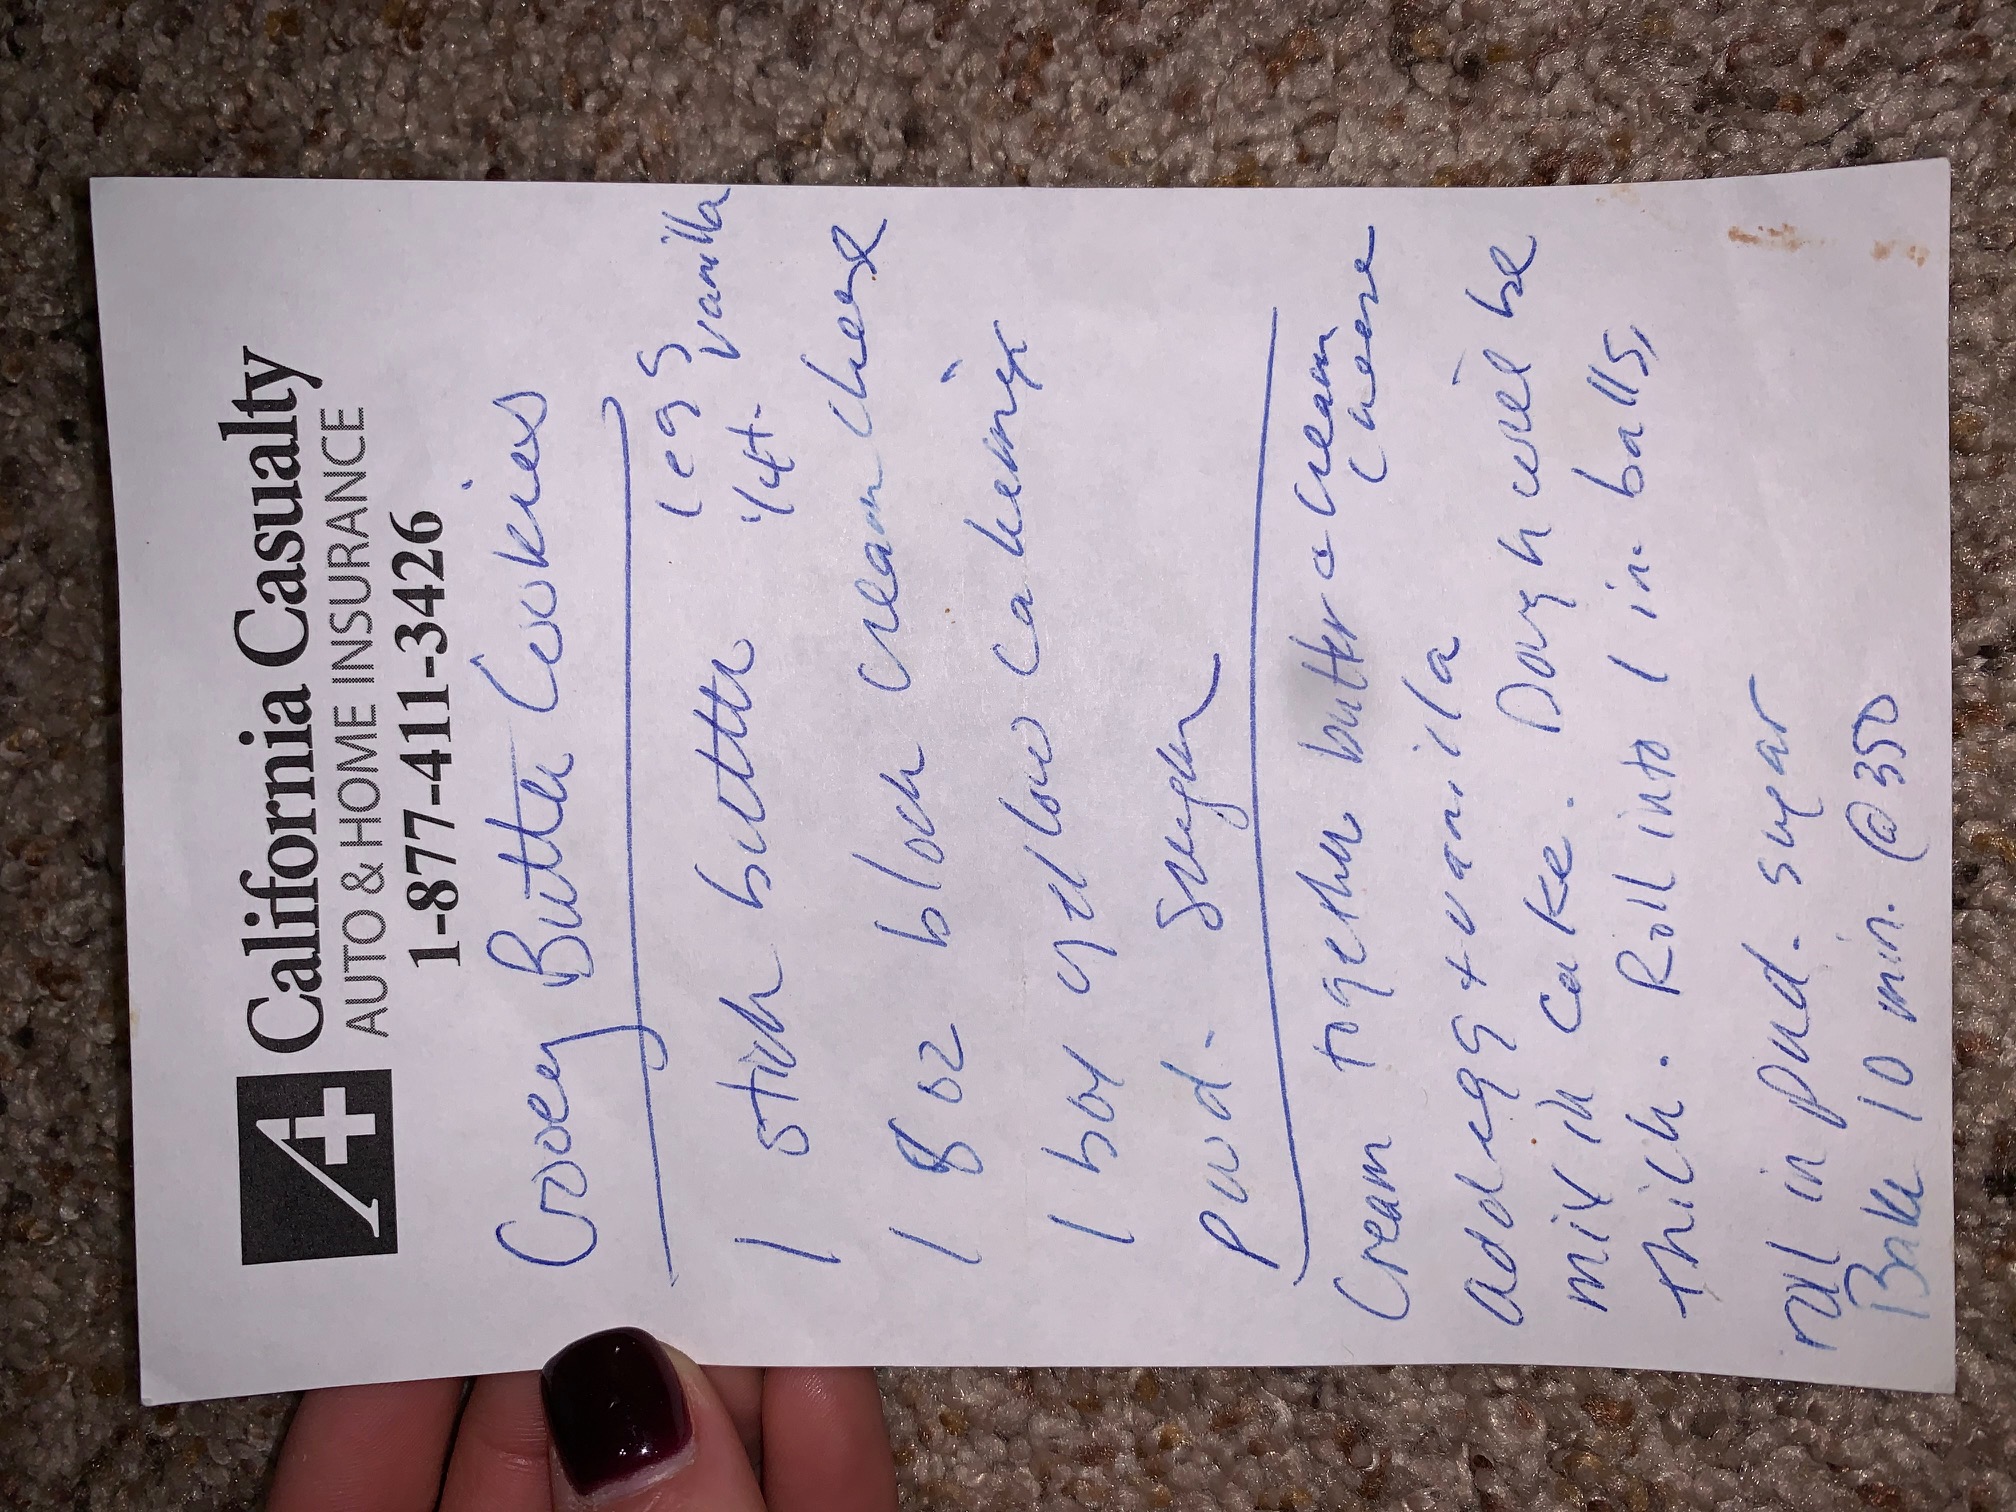 California Casualty
AUTO & HOME INSURANCE
1-877-411-3426
Gooey Butter Cookies
1 stick butter
1 egg
1/4 t. vanilla
1 8 oz block cream cheese
1 box yellow cakemix
pwd. sugar
Cream together butter & cream
cheese
add egg + vanilla
mix in cake. Dough will be
thick. Roll into 1 in. balls,
roll in pwd. sugar
Bake 10 min. @350